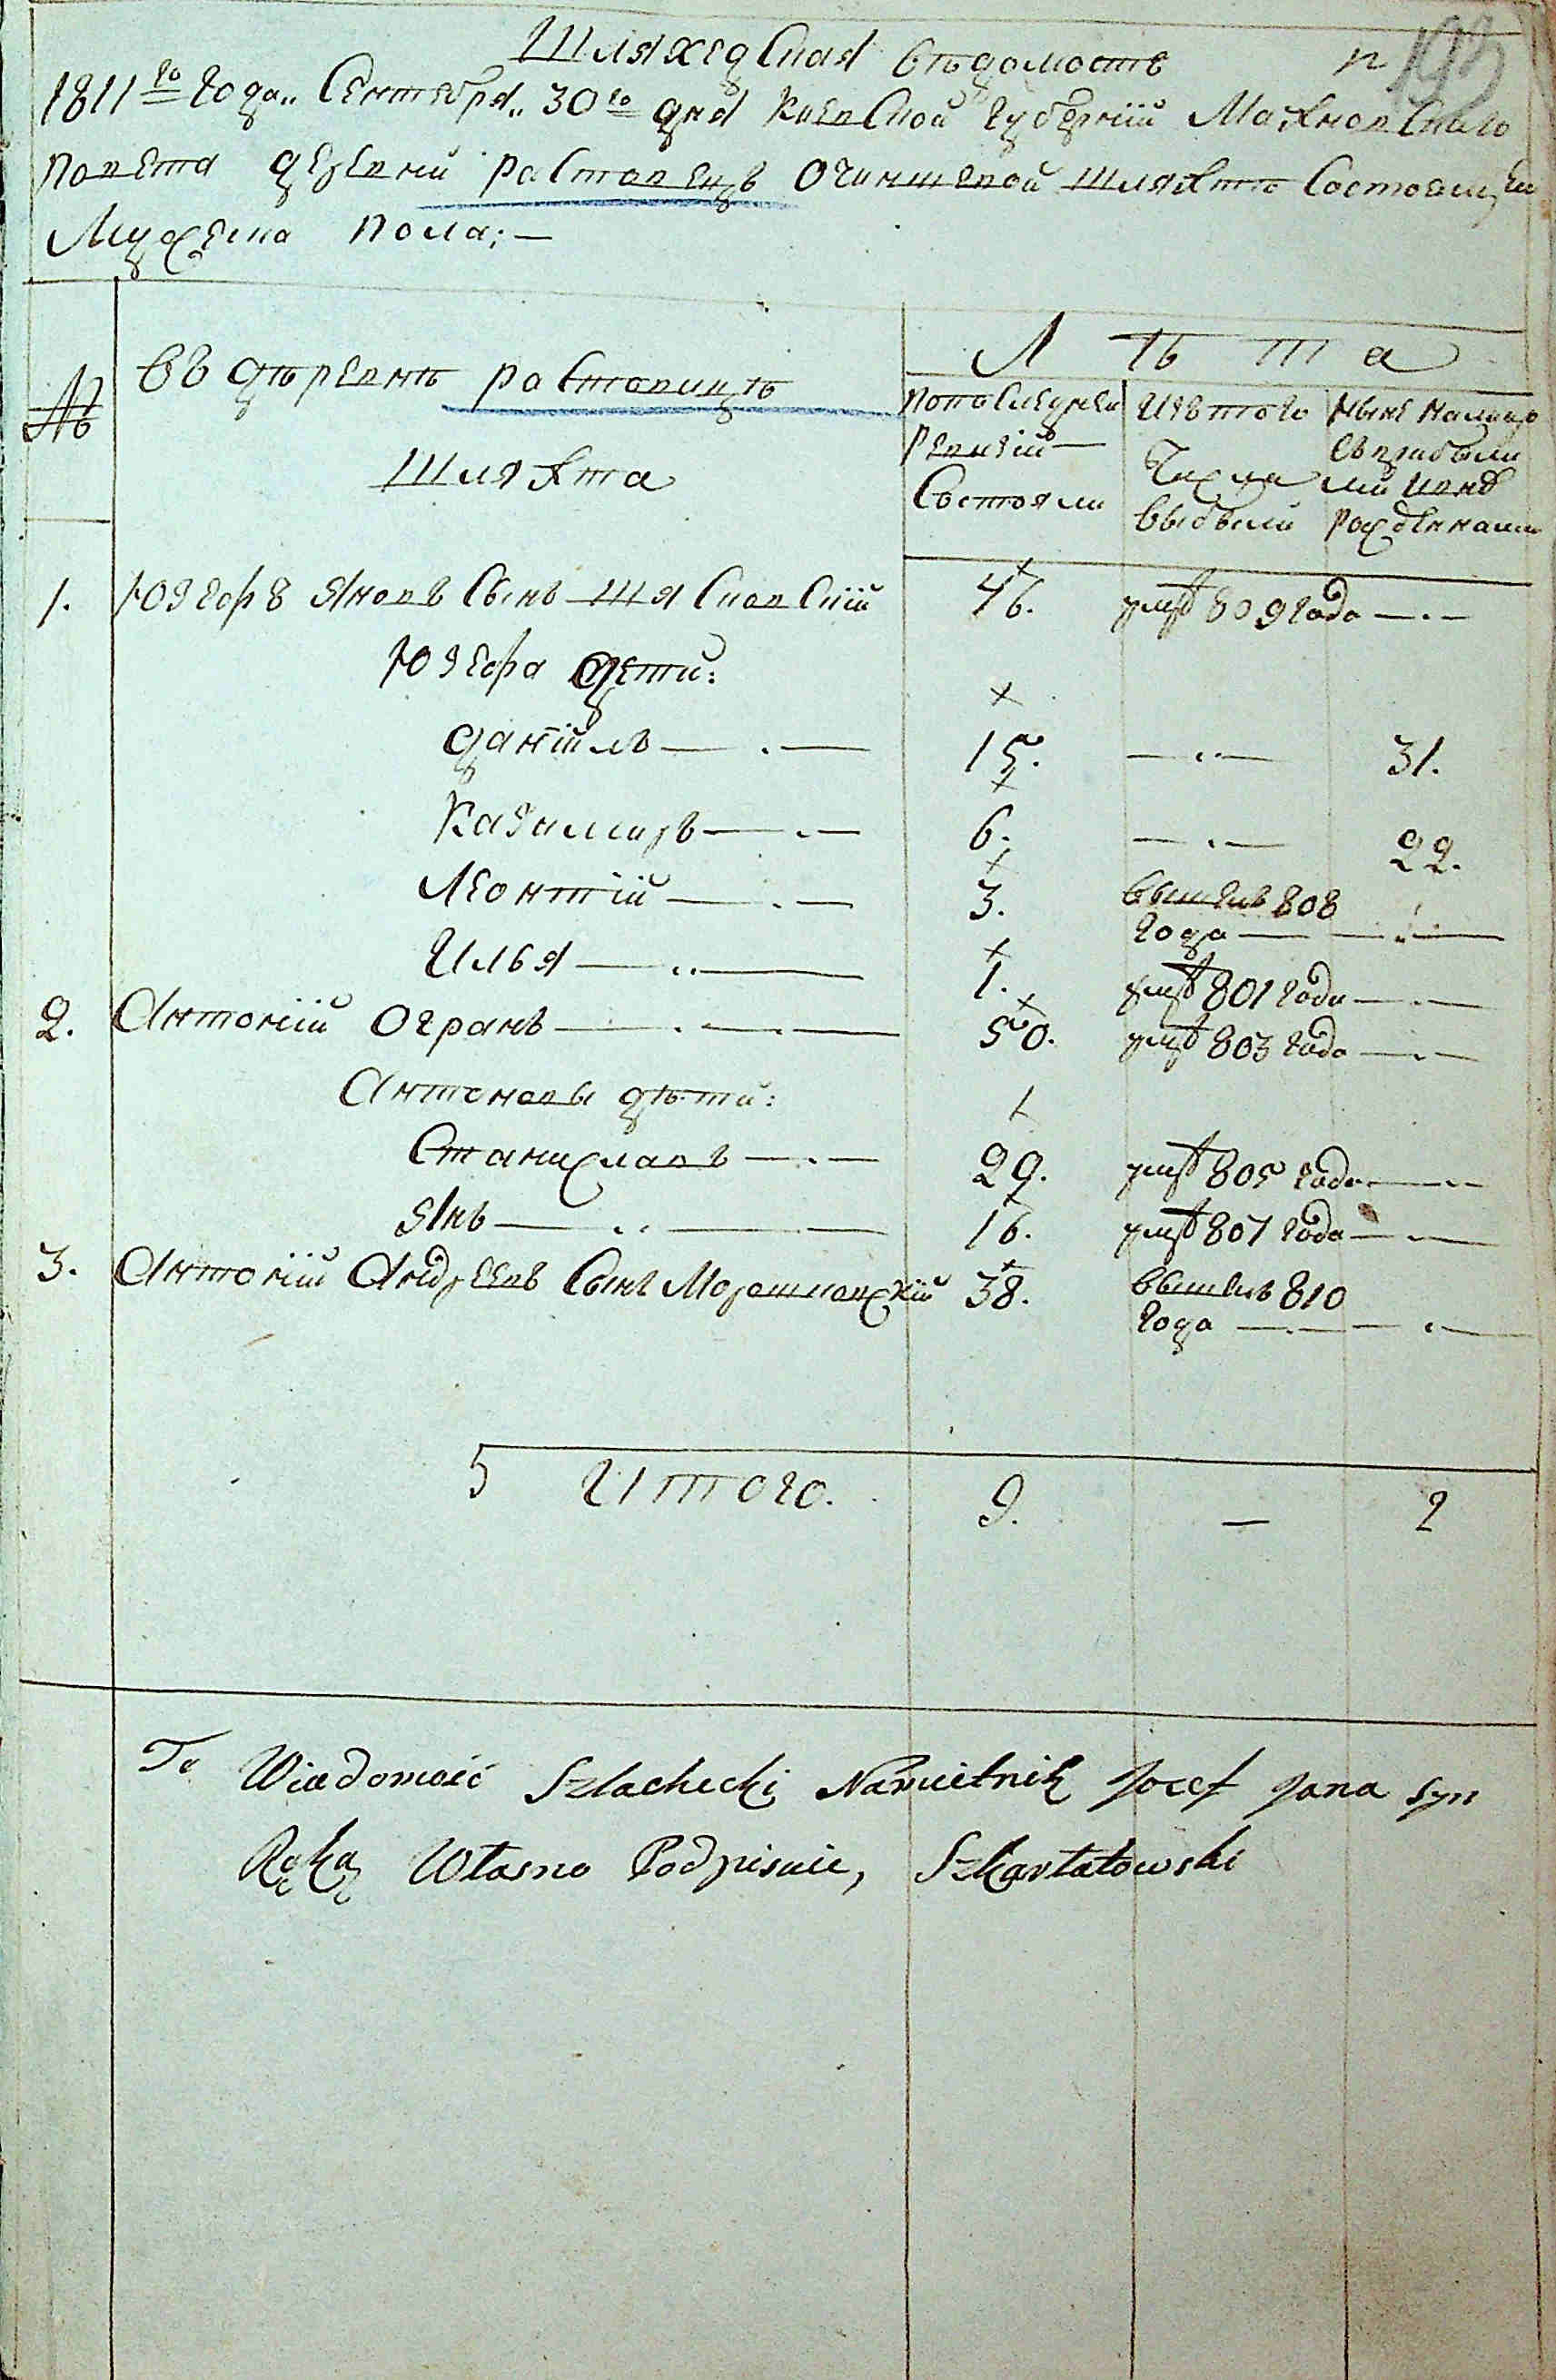 Шляхедская вѣдомость
п 193
1811го года„ Сентебря„ 30го дня Киевской Губернїи Махновскаго
повета деревни Раставецъ о чиншевой шляхтѣ состоящей
Мужеска пола;—
№
въ дѣревнѣ Раставицѣ
Шляхта
Л ѣ т а
по последней ревизїи состояли
изъ того числа выбыли
ныне налицо съ прибылими и внов рожденными
1. Юзефъ Яновъ сынъ Шясковскїй 46. умре 809 года —.—
Юзефа дети:
Данїилъ —.— 15. —..— 31.
Казимиръ —.— 6. —.— 22.
Леонтїй —.— 3. вышелъ 808
года —..—
Илья —..— 1. умре 801 года —.—
2. Антонїй Огранъ —.—.— 50. умре 803 года —.—
Антоновы дѣти:
Станиславъ —.— 29. умре 805 года —..
Янъ —..— 16. умре 807 года —.—
3. Антонїй Андреевъ сынъ 38. вышелъ 810
года —.—.—
5 Итого. 9. — 2
To Wiadomość Szlachecki Namietnik Jozef Jana syn
Ręką Własno Podpisuie, Szkartatowski